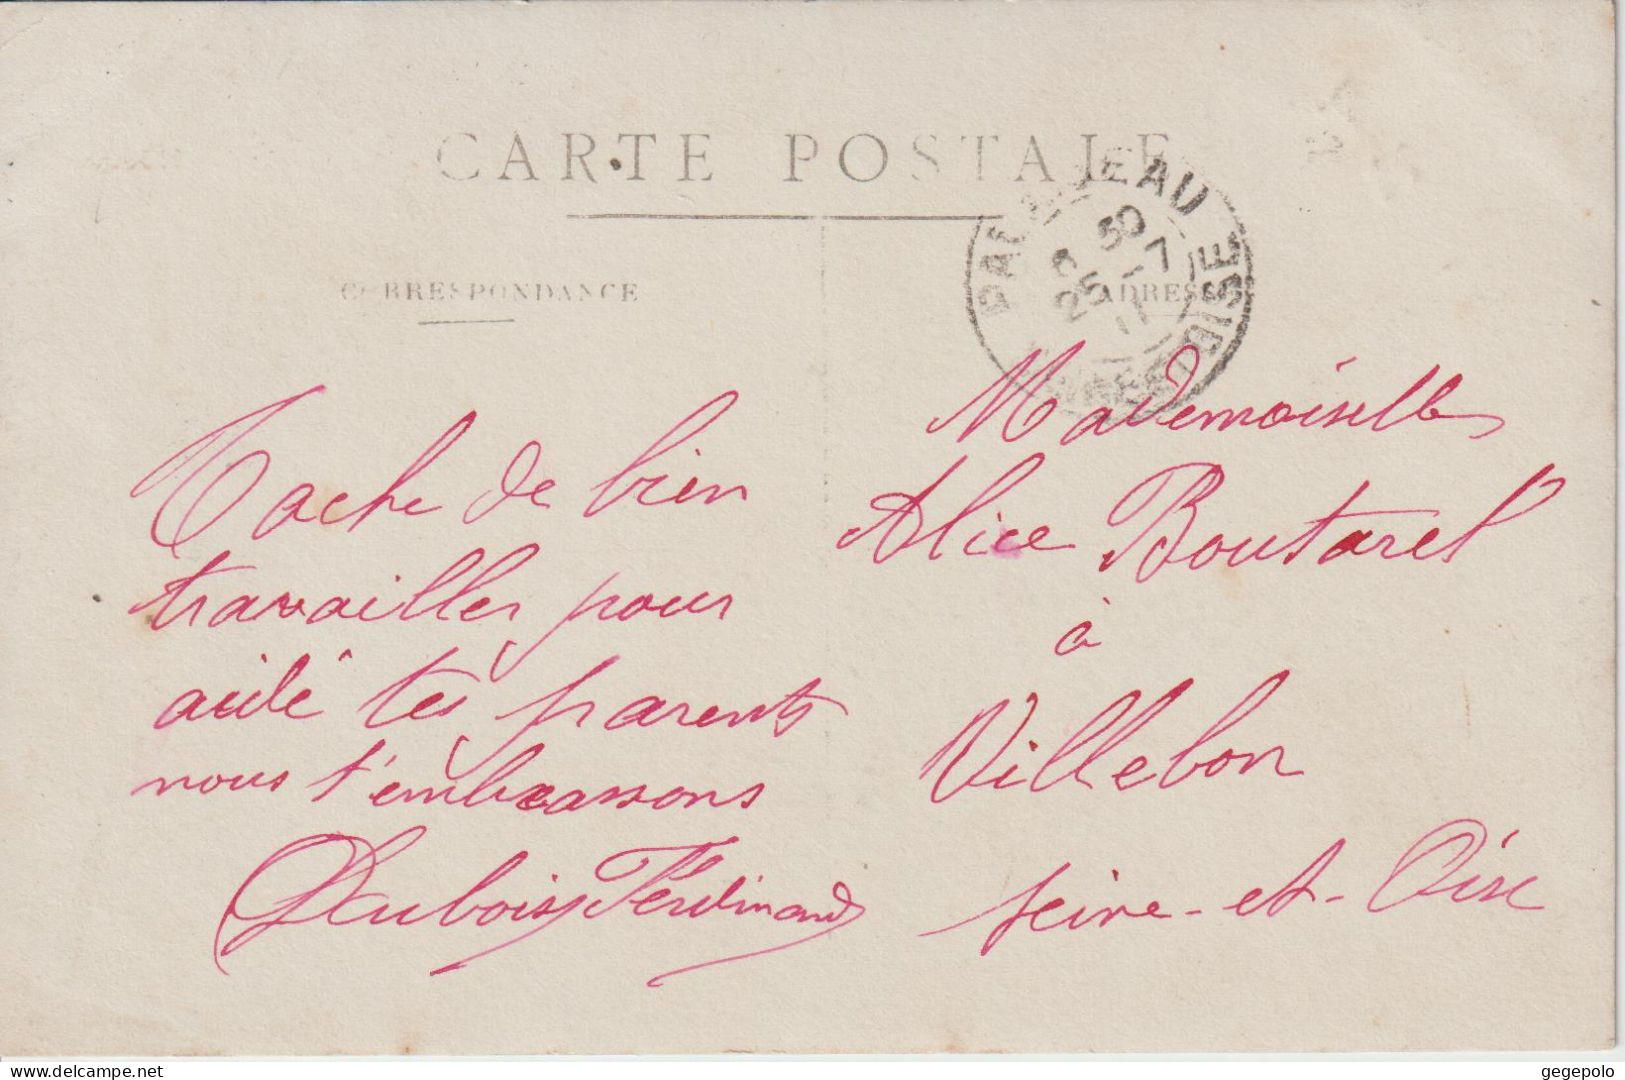 CARTE POSTALE
CORRESPONDANCE
ADRESSE
PALAISEAU
SEINE-ET-OISE
50
25 - 7
11
Tache de bien
travailler pour
aidé tes parents
nous t'embrassons
Dubois Ferdinand
Mademoiselle
Alice Boutarel
à
Villebon
Seine-et-Oise
www.delcampe.net
gegepolo